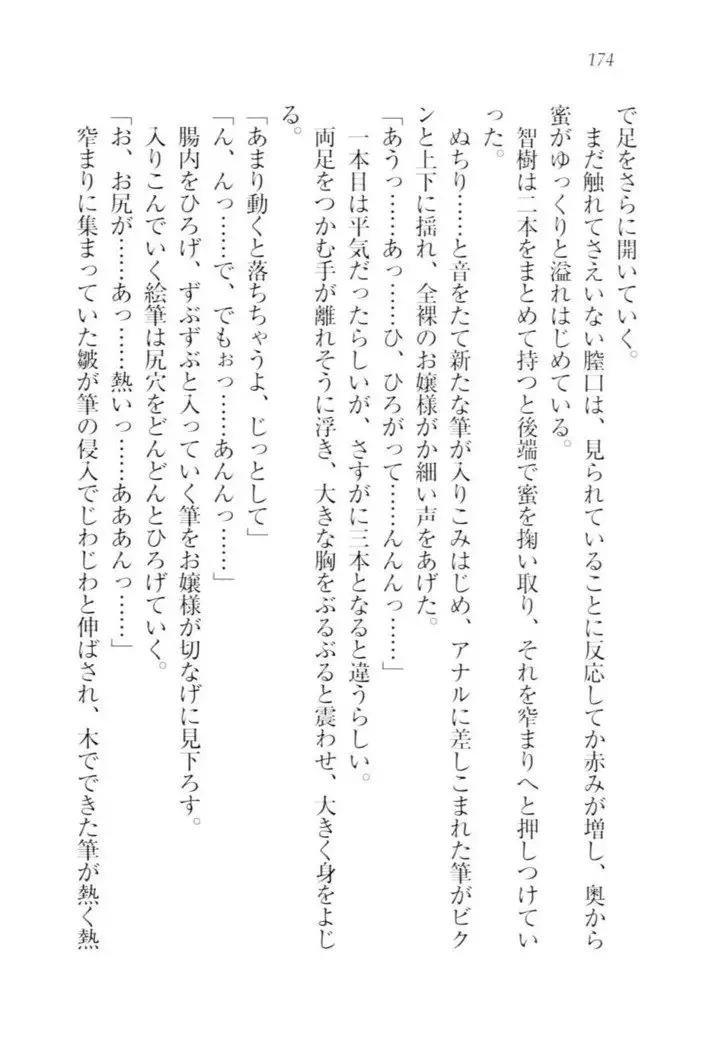 174
で足をさらに開いていく。
まだ触れてさえいない膣口は、見られていることに反応してか赤みが増し、奥から
蜜がゆっくりと溢れはじめている。
智樹は二本をまとめて持つと後端で蜜を掬い取り、それを窄まりへと押しつけてい
った。
ぬちり……と音をたて新たな筆が入りこみはじめ、アナルに差しこまれた筆がビク
ンと上下に揺れ、全裸のお嬢様がか細い声をあげた。
「あうっ……あっ……ひ、ひろがって……んんんっ……」
一本目は平気だったらしいが、さすがに三本となると違うらしい。
両足をつかむ手が離れそうに浮き、大きな胸をぶるぶると震わせ、大きく身をよじ
る。
「あまり動くと落ちちゃうよ、じっとして」
「ん、んっ……で、でもぉっ……あんんっ……」
腸内をひろげ、ずぶずぶと入っていく筆をお嬢様が切なげに見下ろす。
入りこんでいく絵筆は尻穴をどんどんとひろげていく。
「お、お尻が……あっ……熱いっ……あああんっ……」
窄まりに集まっていた皺が筆の侵入でじわじわと伸ばされ、木でできた筆が熱く熱